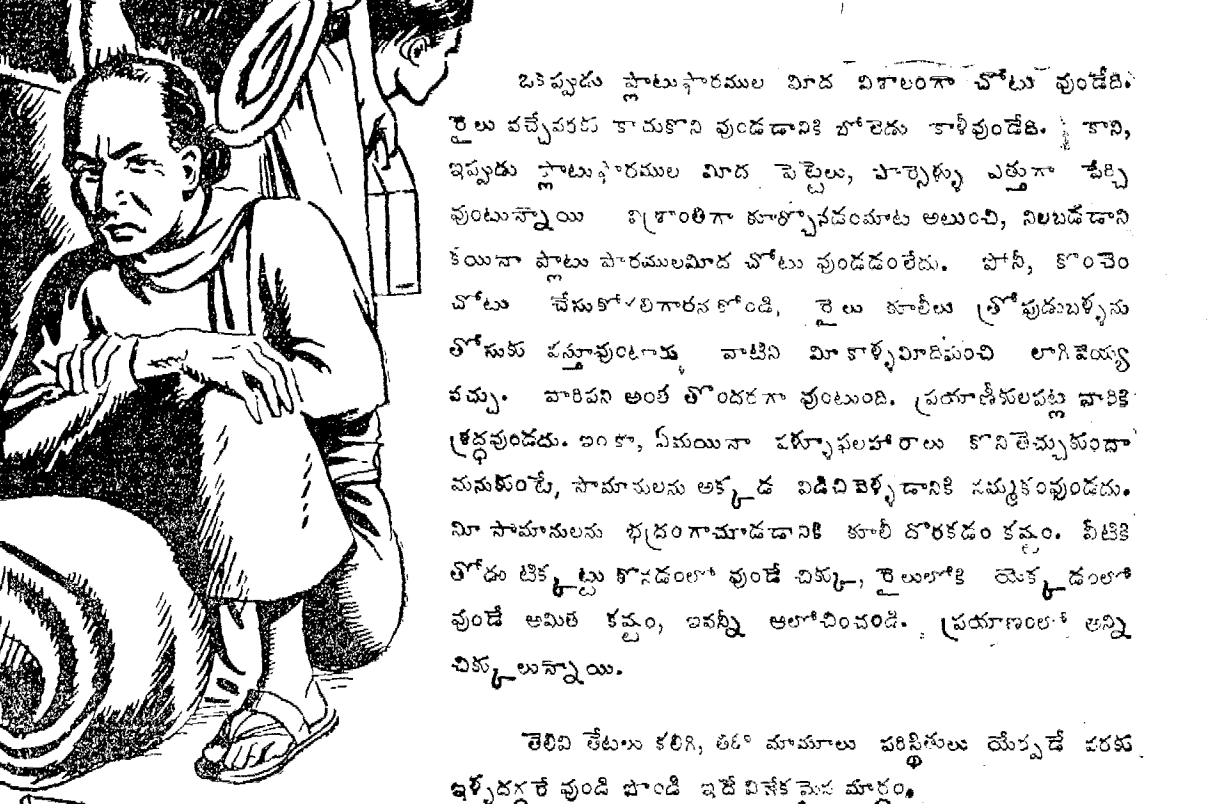 ఒకప్పుడు ప్లాటుఫారముల మీద విశాలంగా చోటు వుండేది.
రైలు వచ్చేవరకు కాచుకొని వుండడానికి బోలెడు ఖాళీవుండేది. కాని,
ఇప్పుడు ప్లాటుఫారముల మీద పెట్టెలు, పార్సెళ్ళు ఎత్తుగా పేర్చి
వుంటున్నాయి విశ్రాంతిగా కూర్చోనడంమాట అటుంచి, నిలబడడాని
కయినా ప్లాటు ఫారములమీద చోటు వుండడంలేదు. పోనీ, కొంచెం
చోటు చేసుకో గలిగారనకోండి, రైలు కూలీలు త్రోపుడుబళ్ళను
తోసుకు వస్తూవుంటారు వాటిని మీకాళ్ళమీదినుంచి లాగివెయ్య
వచ్చు. వారిపని అంత తొందరగా వుంటుంది. ప్రయాణీకులపట్ల వారికి
శ్రద్ధవుండదు. ఇంకా, ఏమయినా పళ్ళూఫలహారాలు కొనితెచ్చుకుందా
మనుకుంటే, సామానులను అక్కడ విడిచివెళ్ళడానికి నమ్మకంవుండదు.
మీ సామానులను భద్రంగాచూడడానికి కూలీ దొరకడం కష్టం. వీటికి
తోడు టిక్కట్టు కొనడంలో వుండే చిక్కు, రైలులోకి యెక్కడంలో
వుండే అమిత కష్టం, ఇవన్నీ ఆలోచించండి. ప్రయాణంలో అన్ని
చిక్కులున్నాయి.
తెలివి తేటలు కలిగి, తిరిగా మామూలు పరిస్థితులు యేర్పడే వరకు
ఇళ్ళదగ్గరే వుండి పొండి ఇదే వివేకమైన మార్గం.